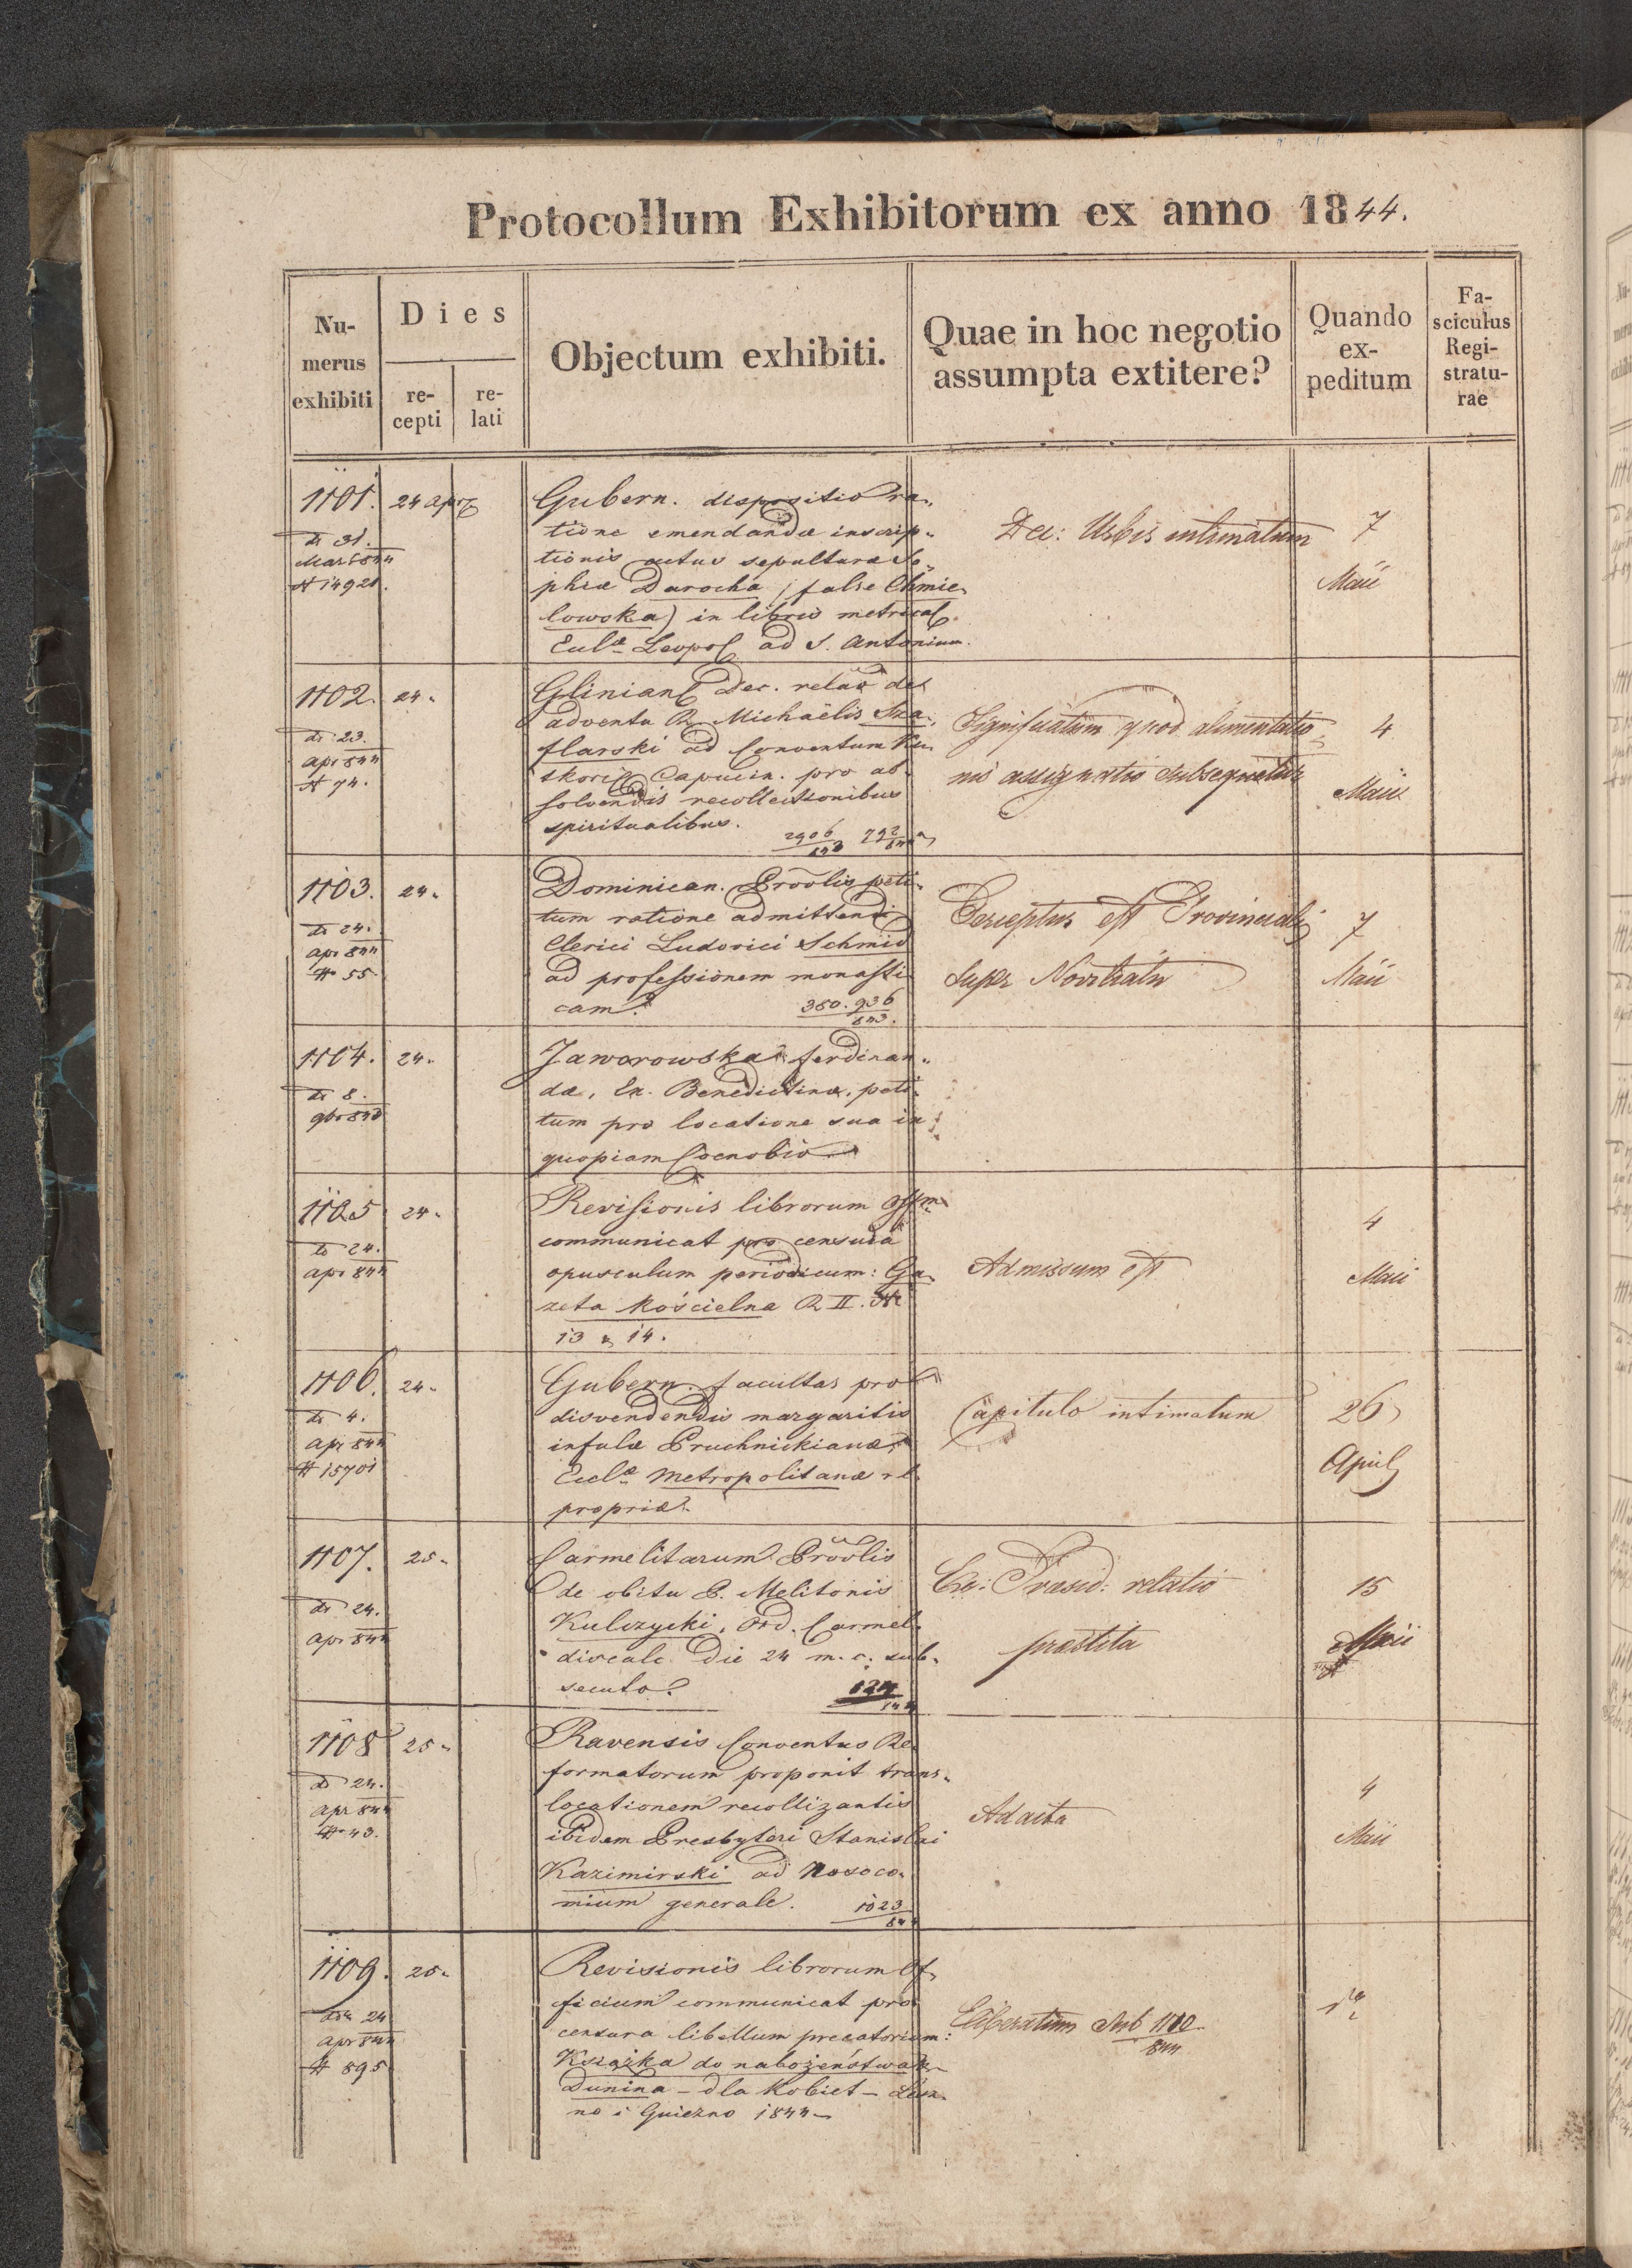 Protocollum Exhibitorum ex anno 1844.
Nu-
merus
exhibiti
Dies
re-
cepti
re-
lati
Objectum exhibiti.
Quae in hoc negotio
assumpta extitere?
Quando
ex-
peditum
Fa-
sciculus
Regi-
stratu-
rae
1101. 24 apr
dt 31.
Mart 844
N 14921.
Gubern. dispositio ra-
tione emendandæ inscrip-
tionis actus sepulturæ So-
phiæ Darocha (false Chmie-
lowska) in libris metrical.
Eccl. Leopol ad S. Antonium.
Dec: Urbis intimatum
7
Maii
1102. 24.
dt 23.
apr 844
N 74.
Glinian Dec. relatio de
adventu R. Michaëlis Sza-
flarski ad Conventum Ku-
tkorien Capucin. pro ab-
solvendis recollectionibus
spiritualibus. 2906/843 792/844
Significatum quod alimentatio-
nis assignatio subsequetur
4
Maii
1103. 24.
dt 24.
apr 844
N 55.
Dominican. Prov̄lis peti-
tum ratione admittendi
Clerici Ludovici Schmid
ad professionem monasti-
cam. 380.936/843.
est Provincialis
super Novitiatu
7
Maii
1104. 24.
dt 8.
9br 843
Jaworowska Ferdinan-
dæ, Ex. Benedictinæ, peti-
tum pro locatione sua in
quopiam Coenobio
1105 24.
dt 24.
apr 844
Revisionis librorum Offm
communicat pro censura
opusculum periodicum: Ga-
zeta Kościelna R II. N
13 & 14.
Admissum est
4
Maii
1106. 24.
dt 4.
apr 844
N 15701
Gubern. facultas pro
disvendendis margaritis
infulæ Pruchnickianæ,
Eccl. Metropolitanæ r.l.
propriæ.
Capitulo intimatum
26
April
1107. 25.
dt 24.
apr 844
Carmelitarum Prov̄lis
de obitu P. Melitonis
Kulczycki, Ord. Carmel.
discalc. die 24 m. c. sub-
secuto. 124/844
Cæs: Præsid: relatio
præstita
15
Maii
1108 25.
dt 24.
apr 844
N 43.
Ravensis Conventus Re-
formatorum proponit trans-
locationem recollizantis
ibidem Presbyteri Stanislai
Kazimirski ad Nosoco-
mium generale. 1023/844
Ad acta
4
Maii
1109. 25.
dt 24
apr 844
N 595
Revisionis librorum Of-
ficium communicat pro
censura libellum precatorium:
Książka do nabożeństwa
Dunina - dla kobiet - Lesz-
no i Gniezno 1844
Liberatum sub 1110/844